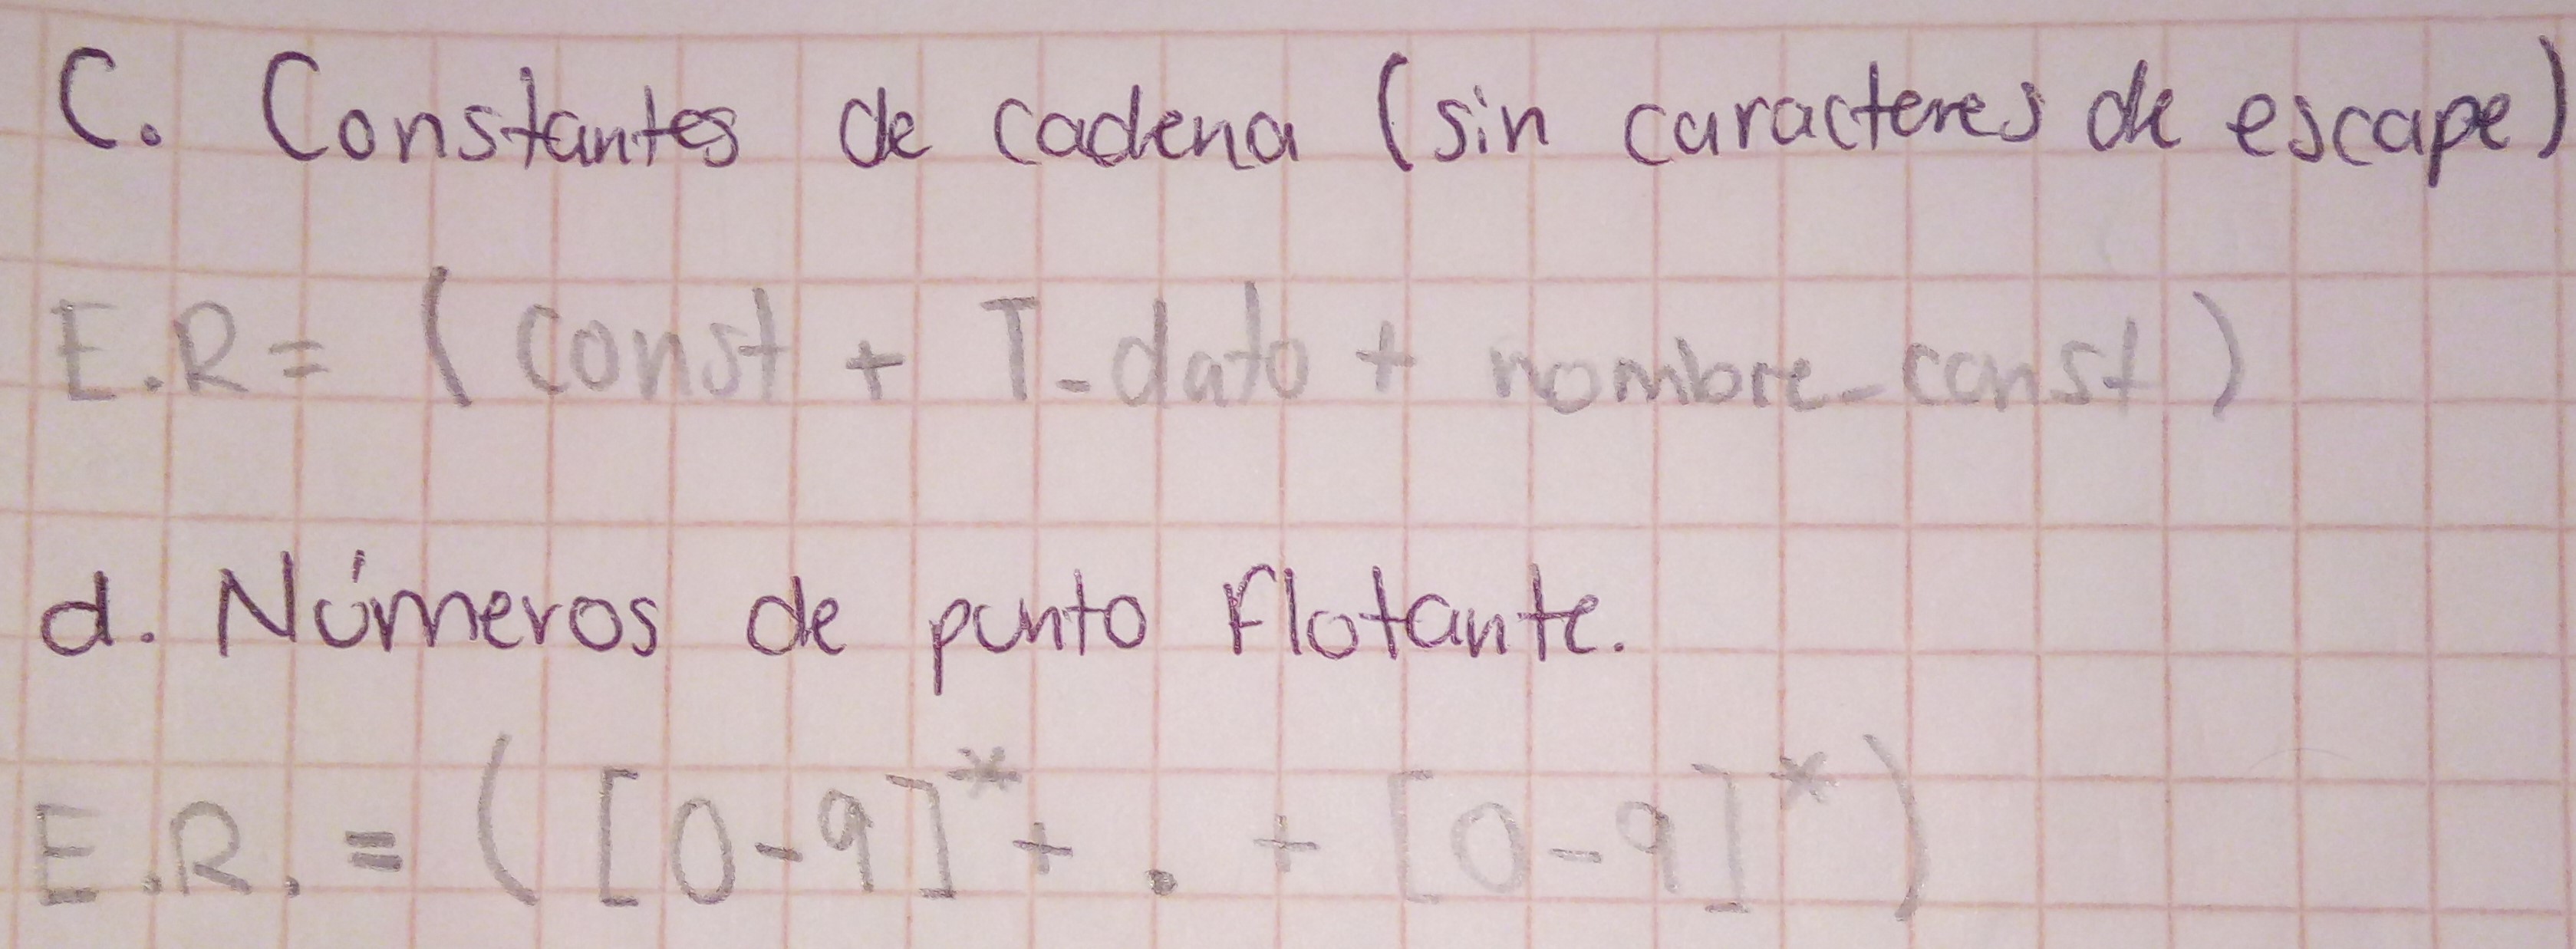 C. Constantes de cadena (sin caracteres de escape)
E.R = ( Const + T-dato + nombre-const )
d. Números de punto Flotante.
E.R. = ( [0-9]* + . + [0-9]* )